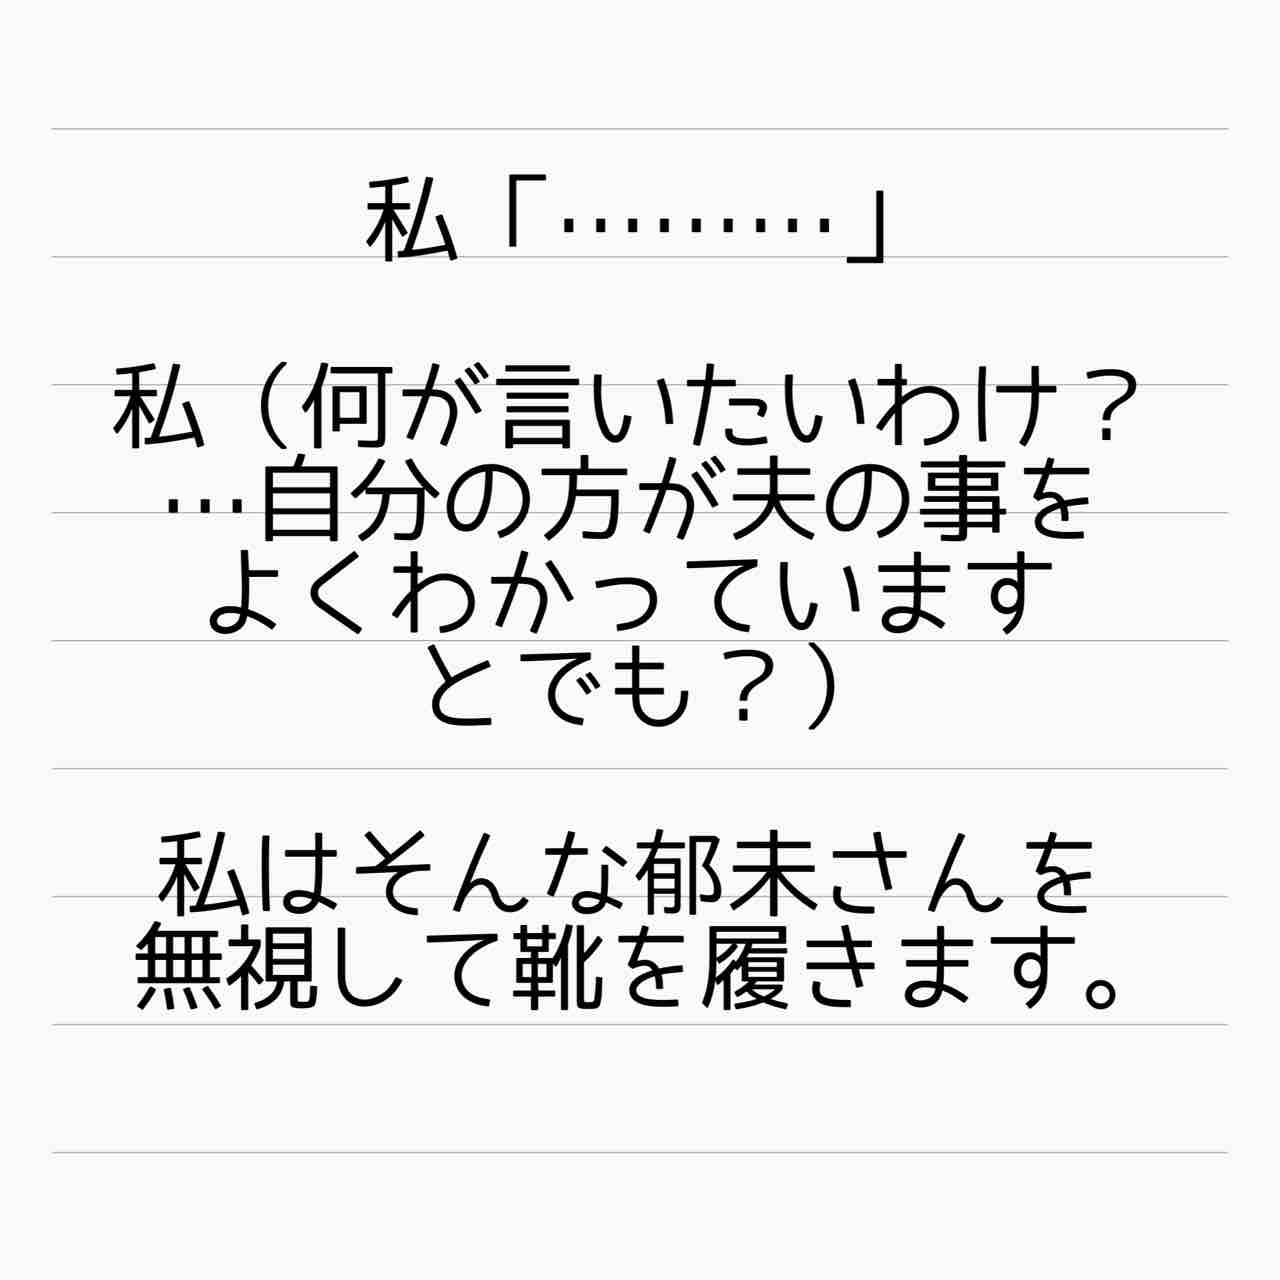 私「………」
私（何が言いたいわけ？
…自分の方が夫の事を
よくわかっています
とでも？）
私はそんな郁未さんを
無視して靴を履きます。